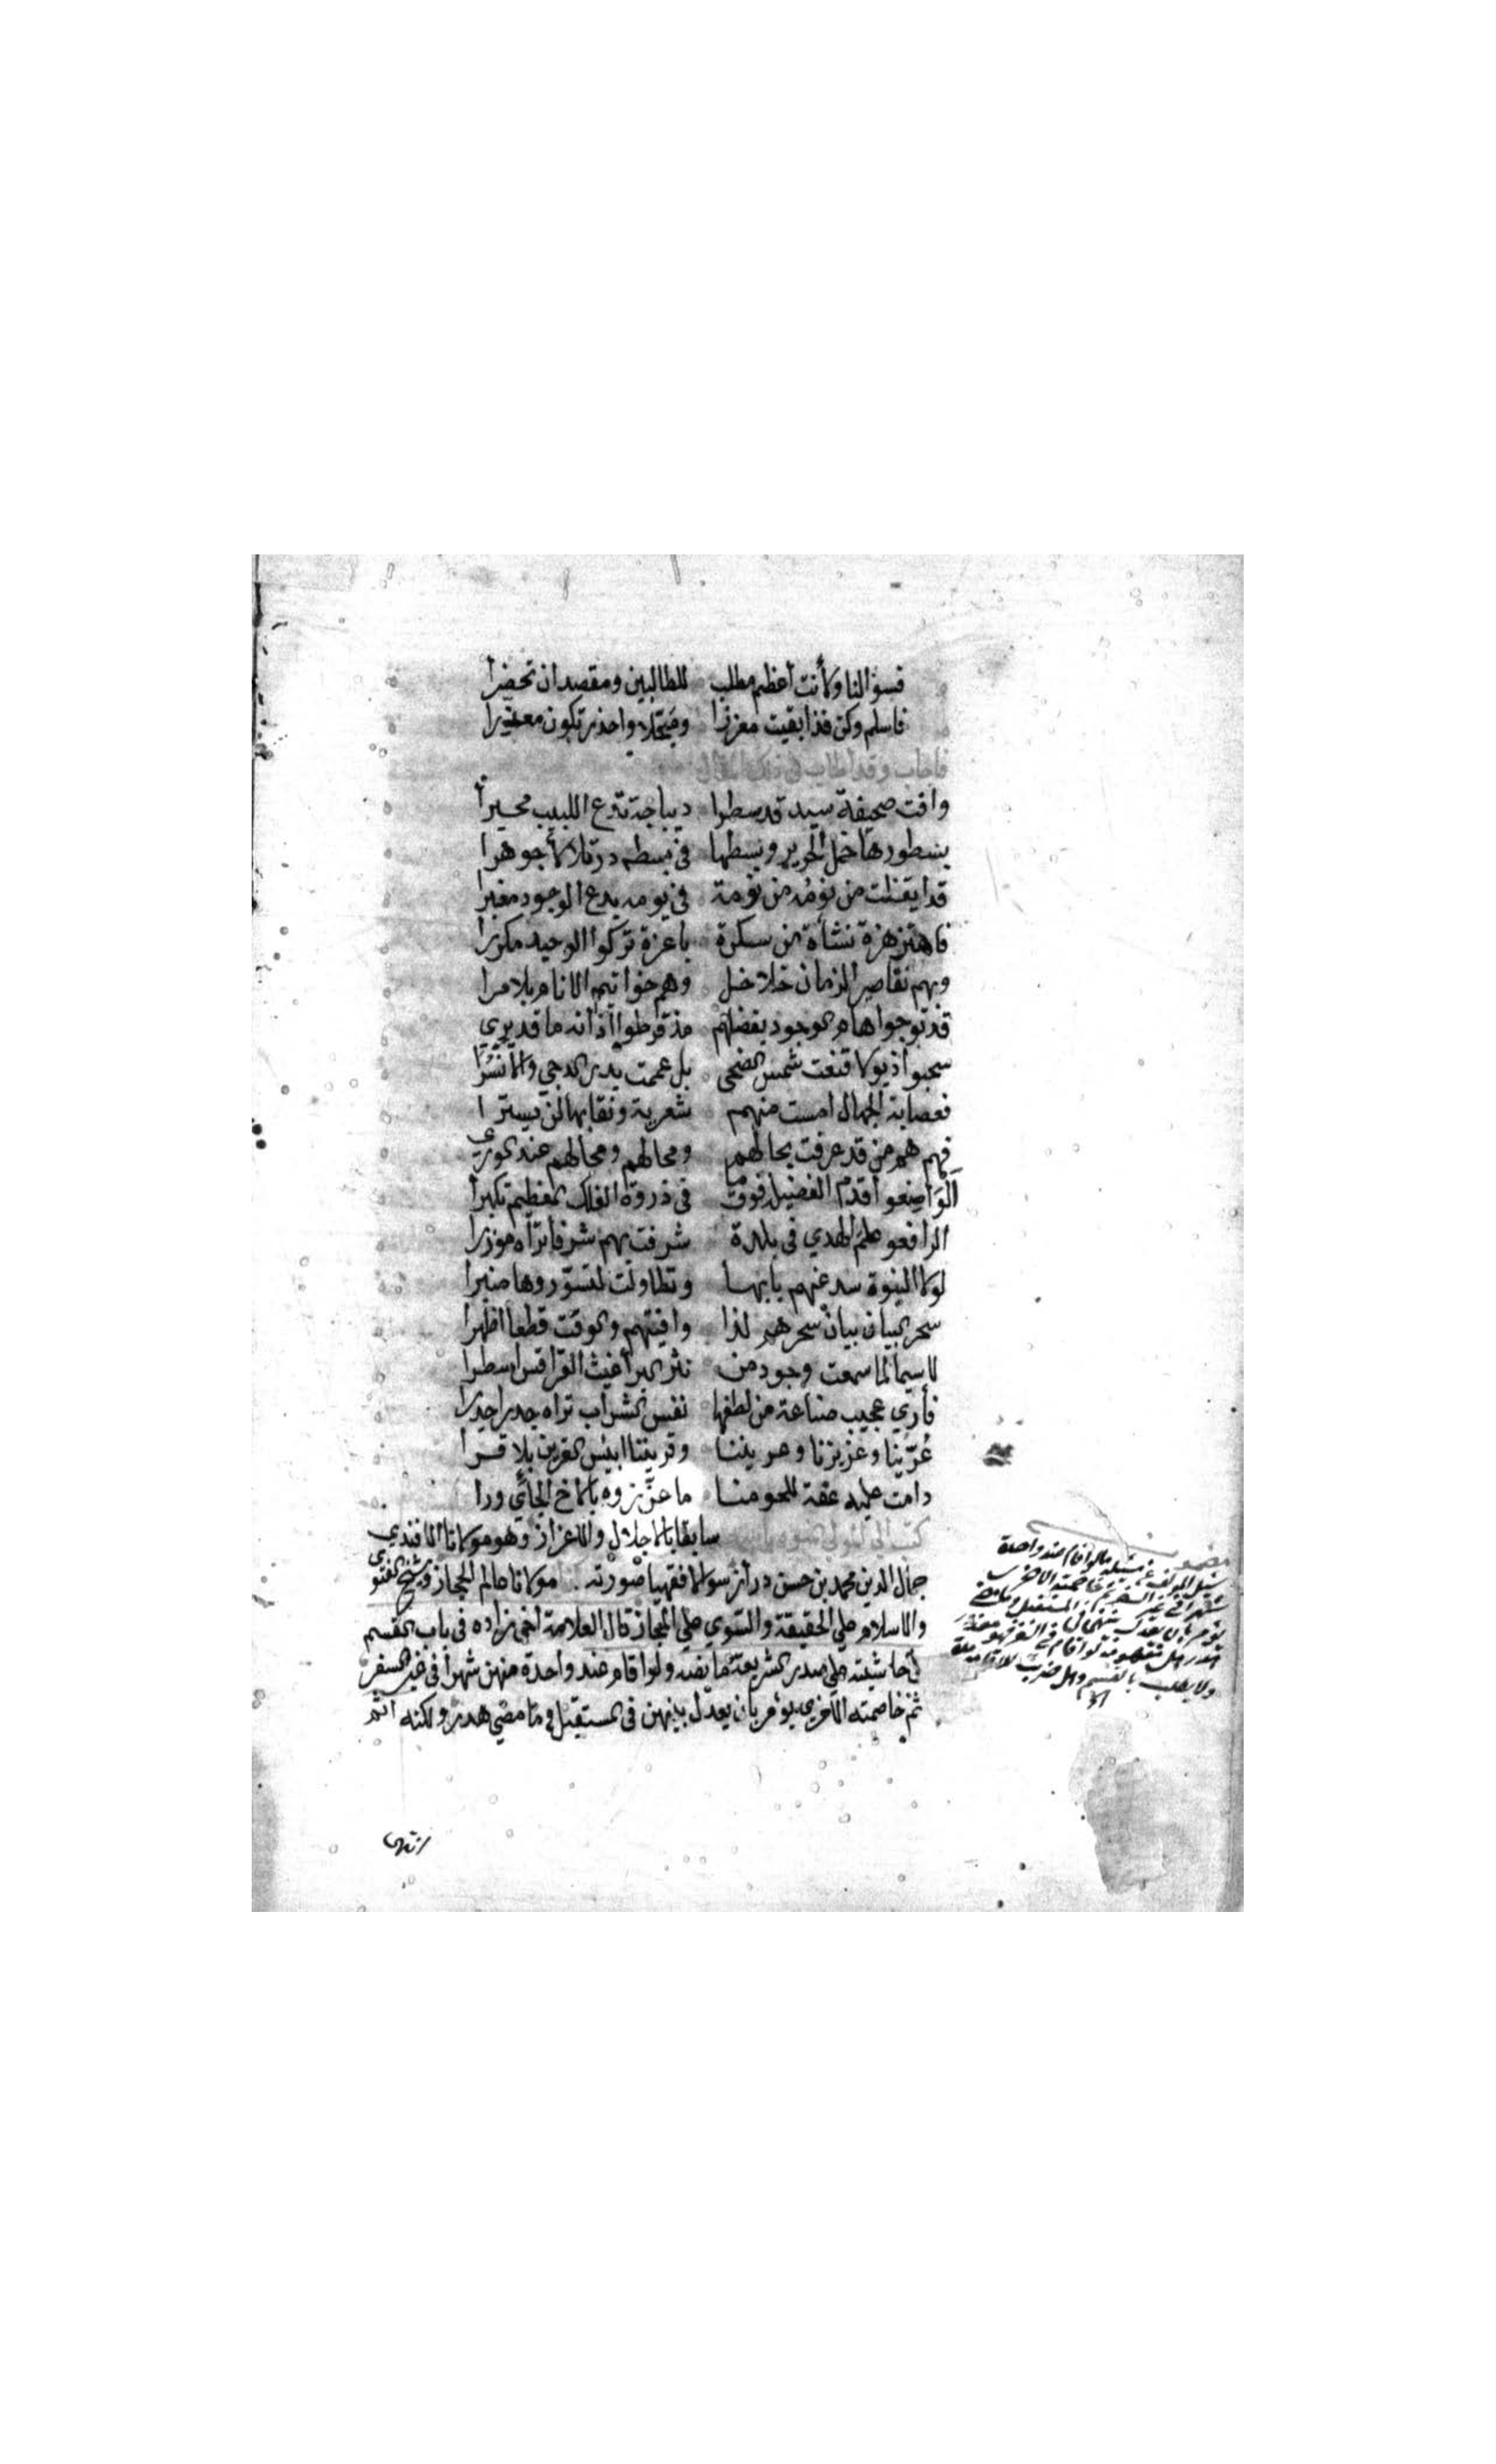 فسؤالنا ولأنت أعظم مطلب للطالبين ومقصد ان تحضرا
فاسلم وكن فذا بقيت معززا ومبجلا واحذر تكون معفرا
فاجاب وقد اطاب في ذلك المقال
وافت صحيفة سيد قد سطرا ديباجة تدع اللبيب محيرا
بسطورها خمل الحرير وبسطها في بسطه در تلألأ جوهرا
قد ايقظت من نومه من نومة في يومه يدع الوجود مغبرا
فاهتز هزة نشأة من سكرة باعزة تركوا الوحيد مكررا
وبهم تقاصير الزمان خلاخل وهم خواتيم الانام بلا مرا
قد توجوا هام الوجود بفضلهم مذ قرطوا آذانه ما قد يري
سحبوا ذيولا قنعت شمس الضحى بل عممت بدر الدجي والأنسرا
فعصابة الجمال امست منهم شعرية ونقابها لن يسترا
فهم هم من قد عرفت بحالهم ومحالهم ومجالهم عند الوري
الواضعو اقدم الفضيلة فوق ما في ذروة الفلك المعظم تكبرا
الرافعو علم الهدي في بلدة شرفت بهم شرفا تراه موزرا
لولا النبوة سد عنهم بابها وتطاولت لتسوروها منبرا
سحر البيان بيان سحرهم لذا وافيتهم والوقت قطعا اظهرا
لا سيما لما سمعت وجود من نثر
فأري عجيب صناعة من لطفها نفس الشراب تراه
وعزيزنا وقريننا بئس القرين بلا
دامت عليه عفة للحومنا ما عززوه بالاخ الجائي ورا
كتب الي المولي المنوه باسمه سابقا بالاجلال والاعزاز وهو مولانا الافندي
جمال الدين محمد بن حسن دراز سوالا فقهيا صورته مولانا عالم الحجاز وشيخ الفتوي
والاسلام علي الحقيقة والتسوي علي المجاز قال العلامة اخي زاده في باب القسم
في حاشيته علي صدر الشريعة ما نصه ولو اقام عند واحدة منهن شهرا في غير السفر
ثم خاصمته الاخري يؤمر بان يعدل بينهن في المستقبل وما مضي هدر ولكنه اثم
انتهي
مضمون
سئل المولف عن مسئلة ما لو اقام عند واحدة
شهرا في غير السفر ثم خاصمته الاخري
يؤمر بان يعدل بينهما في المستقبل وما مضي